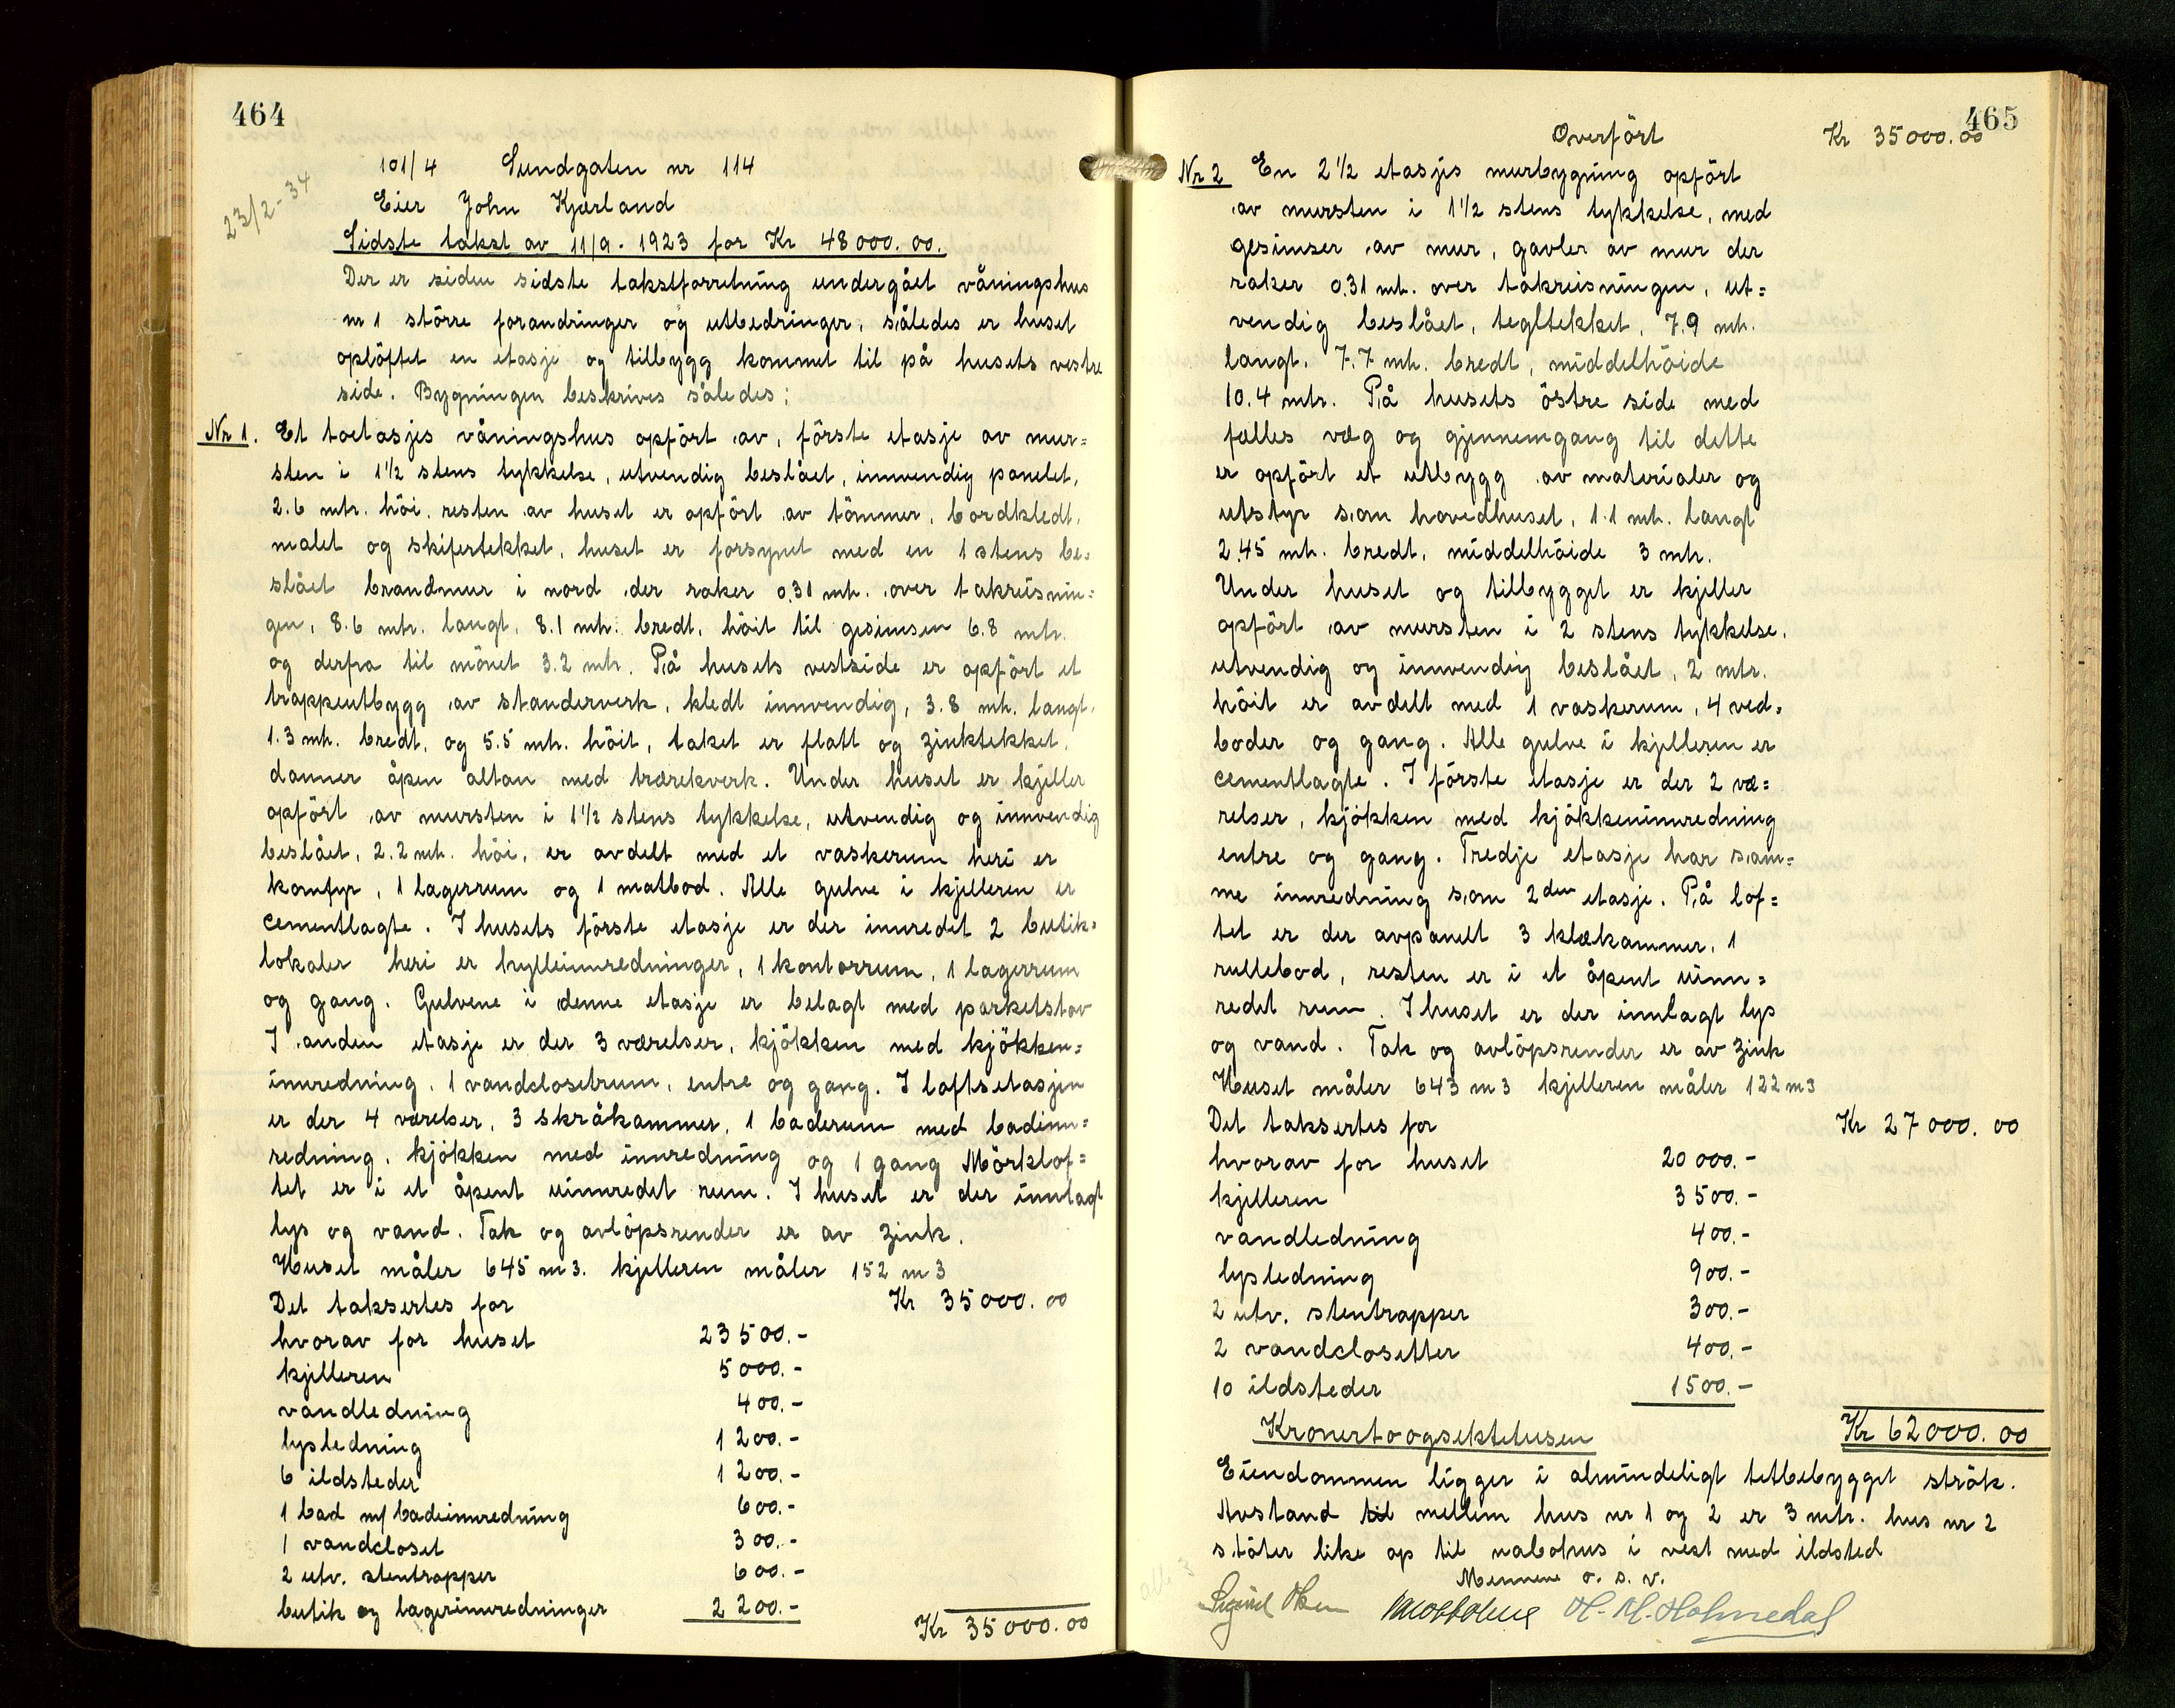 464
23/2-34
101/4 Sundgaten nr 114
Eier John Kjærland
Sidste takst av 11/9-1923 for Kr 48000.00.
Der er siden sidste takstforretning undergået våningshus
nr 1 större forandringer og utbedringer, således er huset
oplöftet en etasje og tilbygg kommet til på husets vestre
side. Bygningen beskrives således:
Nr 1. Et toetasjes våningshus opfört av, förste etasje av mur=
sten i 1½ stens tykkelse, utvendig beslået, innvendig panelet,
2.6 mtr. höi, resten av huset er opfört av tömmer, bordkledt,
malet og skifertekket, huset er forsynet med en 1 stens be=
slået brandmur i nord der raker 0.31 mtr. over takreisnin=
gen, 8.6 mtr. langt, 8.1 mtr. bredt, höit til gesimsen 6.8 mtr.
og derfra til mönet 3.2 mtr. På husets vestside er opfört et
trappeutbygg av standerverk, kledt innvendig, 3.8 mtr. langt,
1.3 mtr. bredt, og 5.5 mtr. höit, taket er flatt og zinktekket,
danner åpen altan med trærekverk. Under huset er kjeller
opfört av mursten i 1½ stens tykkelse, utvendig og innvendig
beslået, 2.2 mtr. höi, er avdelt med et vaskerum heri er
komfyr, 1 lagerrum og 1 matbod. Alle gulve i kjelleren er
cementlagte. I husets förste etasje er der innredet 2 butik=
lokaler heri er hylleinnredninger, 1 kontorrum, 1 lagerrum
og gang. Gulvene i denne etasje er belagt med parketstav
I anden etasje er der 3 værelser, kjökken med kjökken=
innredning, 1 vandclosetrum, entre og gang. I loftsetasjen
er der 4 værelser, 3 skråkammer, 1 baderum med badinn=
redning, kjökken med innredning og 1 gang Mörklof=
tet er i et åpent uinnredet rum. I huset er der innlagt
lys og vand. Tak og avlöpsrender er av zink.
Huset måler 645 m3. kjelleren måler 152 m3
Det taksertes for Kr 35000.00
hvorav for huset 23500.-
kjelleren 5000.-
vandledning 400.-
lysledning 1200.-
6 ildsteder 1200.-
1 bad m/ badeinnredning 600.-
1 vandcloset 300.-
2 utv. stentrapper 600.-
butik og lagerinnredninger 2200.-
Kr 35000.00
465
Overfört Kr 35000.00
Nr 2 En 2½ etasjes murbygning opfört
av mursten i 1½ stens tykkelse, med
gesimser av mur, gavler av mur der
raker 0.31 mtr. over takreisningen, ut=
vendig beslået, tegltekket, 7.9 mtr.
langt, 7.7 mtr. bredt, middelhöide
10.4 mtr. På husets östre side med
fælles væg og gjennemgang til dette
er opfört et utbygg av materialer og
utstyr som hovedhuset, 1.1 mtr. langt
2.45 mtr. bredt, middelhöide 3 mtr.
Under huset og tilbygget er kjeller
opfört av mursten i 2 stens tykkelse,
utvendig og innvendig beslået, 2 mtr.
höit er avdelt med 1 vaskerum, 4 ved=
boder og gang. Alle gulve i kjelleren er
cementlagte. I förste etasje er der 2 væ=
relser, kjökken med kjökkeninnredning
entre og gang. Tredje etasje har sam=
me innredning som 2den etasje. På lof=
tet er der avpanelt 3 klækammer, 1
rullebod, resten er i et åpent uinn=
redet rum. I huset er der innlagt lys
og vand. Tak og avlöpsrender er av zink
Huset måler 643 m3 kjelleren måler 122 m3
Det taksertes for Kr 27000.00
hvorav for huset 20000.-
kjelleren 3500.-
vandledning 400.-
lysledning 900.-
2 utv. stentrapper 300.-
2 vandclosetter 400.-
10 ildsteder 1500.-
Kronertoogsektitusen Kr 62000.00
Eiendommen ligger i almindeligt tetbebygget strök.
Avstand til mellem hus nr 1 og 2 er 3 mtr. hus nr 2
stöter like op til nabohus i vest med ildsted
Mennene o. s. v.
H. M. Holmedal